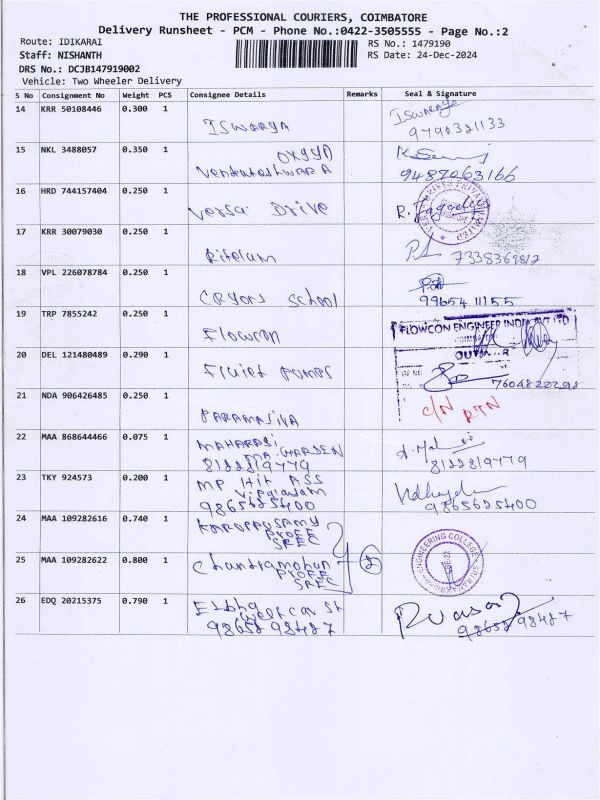 THE PROFESSIONAL COURIERS, COIMBATORE
Delivery Runsheet - PCM - Phone No.:0422-3505555 - Page No.:2
Route: IDIKARAI
RS No.: 1479190
Staff: NISHANTH
RS Date: 24-Dec-2024
DRS No.: DCJB147919002
Vehicle: Two Wheeler Delivery
S No Consignment No Weight PCS Consignee Details Remarks Seal & Signature
14 KRR 50108446 0.300 1
ISWARYA
9790321133
15 NKL 3488057 0.350 1
OXYGO
Venkateshwara
9487063166
16 HRD 744157404 0.250 1
Versa Drive
R. Jagadee
17 KRR 30079030 0.250 1
7338369812
18 VPL 226078784 0.250 1
Crayons School
99654 11155
19 TRP 7855242 0.250 1
Flowcon
FLOWCON ENGINEER INDIA PVT LTD
20 DEL 121480489 0.290 1
OUTWAR
7604822298
21 NDA 906426485 0.250 1
PARAMASIVA
C/N RTN
22 MAA 868644466 0.075 1
MAHARASI
GARDEN
8122819779
8122819779
23 TKY 924573 0.200 1
MP Hit ASS
9865625400
9865625400
24 MAA 109282616 0.740 1
KARUPPUSAMY
PROFF
SREC
25 MAA 109282622 0.800 1
Chandramohan
PROFF
SREC
2
ENGINEERING COLLEGE
26 EDQ 20215375 0.790 1
98652 98487
98652 98487